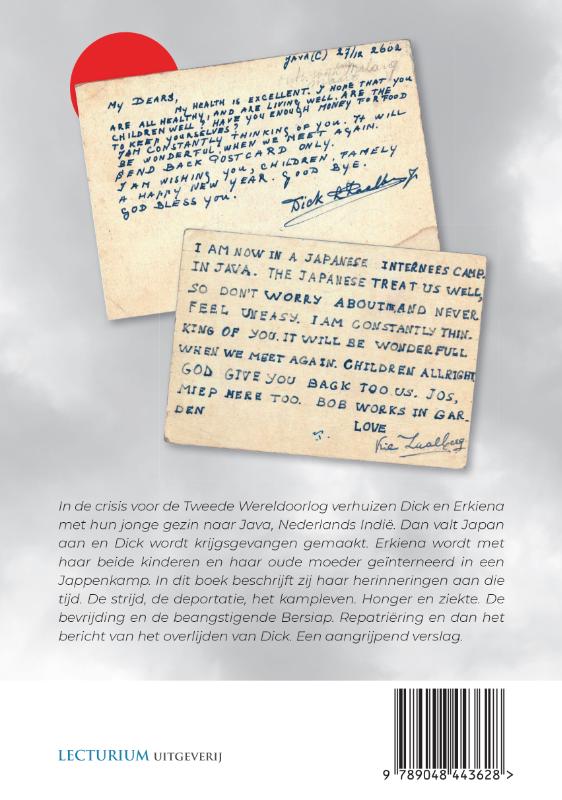 JAVA(C) 27/12 2602
MY DEARS,
MY HEALTH IS EXCELLENT. I HOPE THAT YOU
ARE ALL HEALTHY, AND ARE LIVING WELL. ARE THE
CHILDREN WELL? HAVE YOU ENOUGH MONEY FOR FOOD
TO KEEP YOURSELVES?
I AM CONSTANTLY THINKING OF YOU. IT WILL
BE WONDERFUL, WHEN WE MEET AGAIN.
SEND BACK POSTCARD ONLY.
I AM WISHING YOU, CHILDREN, FAMELY
A HAPPY NEW YEAR. GOOD BYE.
GOD BLESS YOU.
Dick
I AM NOW IN A JAPANESE INTERNEES CAMP.
IN JAVA. THE JAPANESE TREAT US WELL,
SO DON'T WORRY ABOUT ME AND NEVER
FEEL UNEASY. I AM CONSTANTLY THIN-
KING OF YOU. IT WILL BE WONDERFULL
WHEN WE MEET AGAIN. CHILDREN ALLRIGHT
GOD GIVE YOU BACK TOO US. JOS,
MIEP HERE TOO. BOB WORKS IN GAR-
DEN
LOVE
In de crisis voor de Tweede Wereldoorlog verhuizen Dick en Erkiena
met hun jonge gezin naar Java, Nederlands Indië. Dan valt Japan
aan en Dick wordt krijgsgevangen gemaakt. Erkiena wordt met
haar beide kinderen en haar oude moeder geïnterneerd in een
Jappenkamp. In dit boek beschrijft zij haar herinneringen aan die
tijd. De strijd, de deportatie, het kampleven. Honger en ziekte. De
bevrijding en de beangstigende Bersiap. Repatriëring en dan het
bericht van het overlijden van Dick. Een aangrijpend verslag.
LECTURIUM UITGEVERIJ
9 789048 443628 >